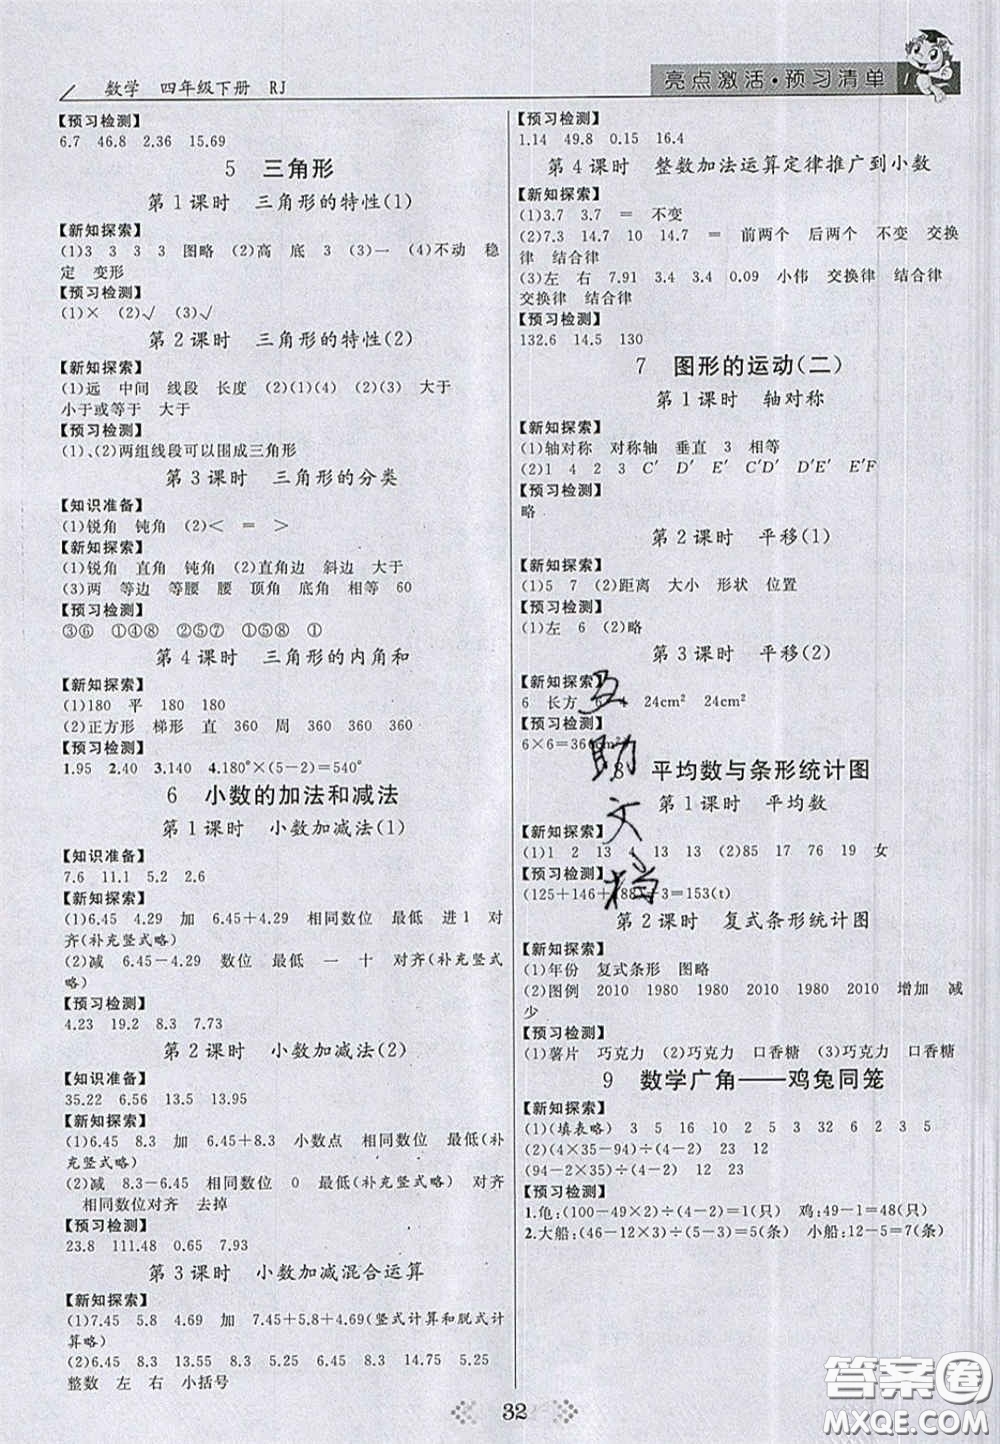 数学 四年级下册 RJ
亮点激活·预习清单
【预习检测】
6.7 46.8 2.36 15.69
5 三角形
第1课时 三角形的特性(1)
【新知探索】
(1)3 3 3 3 图略 (2)高 底 3 (3)一 (4)不动 稳
定 变形
【预习检测】
(1)× (2)√ (3)√
第2课时 三角形的特性(2)
【新知探索】
(1)远 中间 线段 长度 (2)(1)(4) (2)(3) 大于
小于或等于 大于
【预习检测】
(1)、(2)两组线段可以围成三角形
第3课时 三角形的分类
【知识准备】
(1)锐角 钝角 (2)< = >
【新知探索】
(1)锐角 直角 钝角 (2)直角边 斜边 大于
(3)两 等边 等腰 腰 顶角 底角 相等 60
【预习检测】
③⑥ ①④⑧ ②⑤⑦ ①⑤⑧ ①
第4课时 三角形的内角和
【新知探索】
(1)180 平 180 180
(2)正方形 梯形 直 360 周 360 360 360
【预习检测】
1.95 2.40 3.140 4.180°×(5-2)=540°
6 小数的加法和减法
第1课时 小数加减法(1)
【知识准备】
7.6 11.1 5.2 2.6
【新知探索】
(1)6.45 4.29 加 6.45+4.29 相同数位 最低 进1 对
齐(补充竖式略)
(2)减 6.45-4.29 数位 最低 一 十 对齐(补充竖式
略)
【预习检测】
4.23 19.2 8.3 7.73
第2课时 小数加减法(2)
【知识准备】
35.22 6.56 13.5 13.95
【新知探索】
(1)6.45 8.3 加 6.45+8.3 小数点 相同数位 最低(补
充竖式略)
(2)减 8.3-6.45 相同数位 0 最低(补充竖式略) 对齐
相同数位对齐 去掉
【预习检测】
23.8 111.48 0.65 7.93
第3课时 小数加减混合运算
【新知探索】
(1)7.45 5.8 4.69 加 7.45+5.8+4.69(竖式计算和脱式计
算略)
(2)6.45 8.3 6.45 8.3 14.75 6.45 8.3 14.75 5.25
整数 左 右 小括号
【预习检测】
1.14 49.8 0.15 16.4
第4课时 整数加法运算定律推广到小数
【新知探索】
(1)3.7 3.7 = 不变
(2)7.3 14.7 10 14.7 = 前两个 后两个 不变 交换
律 结合律
(3)左 右 7.91 3.4 3.4 0.09 小伟 交换律 结合律
交换律 结合律
【预习检测】
132.6 14.5 130
7 图形的运动(二)
第1课时 轴对称
【新知探索】
(1)轴对称 对称轴 垂直 3 相等
(2)1 4 2 3 C′ D′ E′ C′D′ D′E′ E′F
【预习检测】
略
第2课时 平移(1)
【新知探索】
(1)5 7 (2)距离 大小 形状 位置
【预习检测】
(1)左 6 (2)略
第3课时 平移(2)
【新知探索】
6 长方 6 4 24cm² 24cm²
【预习检测】
6×6=36(cm²)
8 平均数与条形统计图
第1课时 平均数
【新知探索】
(1)1 2 13 4 13 13 (2)85 17 76 19 女
【预习检测】
(125+146+188)÷3=153(t)
第2课时 复式条形统计图
【新知探索】
(1)年份 复式条形 图略
(2)图例 2010 1980 1980 2010 1980 2010 增加 减
少
【预习检测】
(1)薯片 巧克力 (2)巧克力 口香糖 (3)巧克力 口香糖
9 数学广角——鸡兔同笼
【新知探索】
(1)(填表略) 3 5 16 10 2 5 3 32 6 2 3 5
(2)(4×35-94)÷(4-2) 23 12
(94-2×35)÷(4-2) 12 23
【预习检测】
1.龟:(100-49×2)÷(4-2)=1(只) 鸡:49-1=48(只)
2.大船:(46-12×3)÷(5-3)=5(条) 小船:12-5=7(条)
互
助
文
档
32
答案圈
MXQE.COM